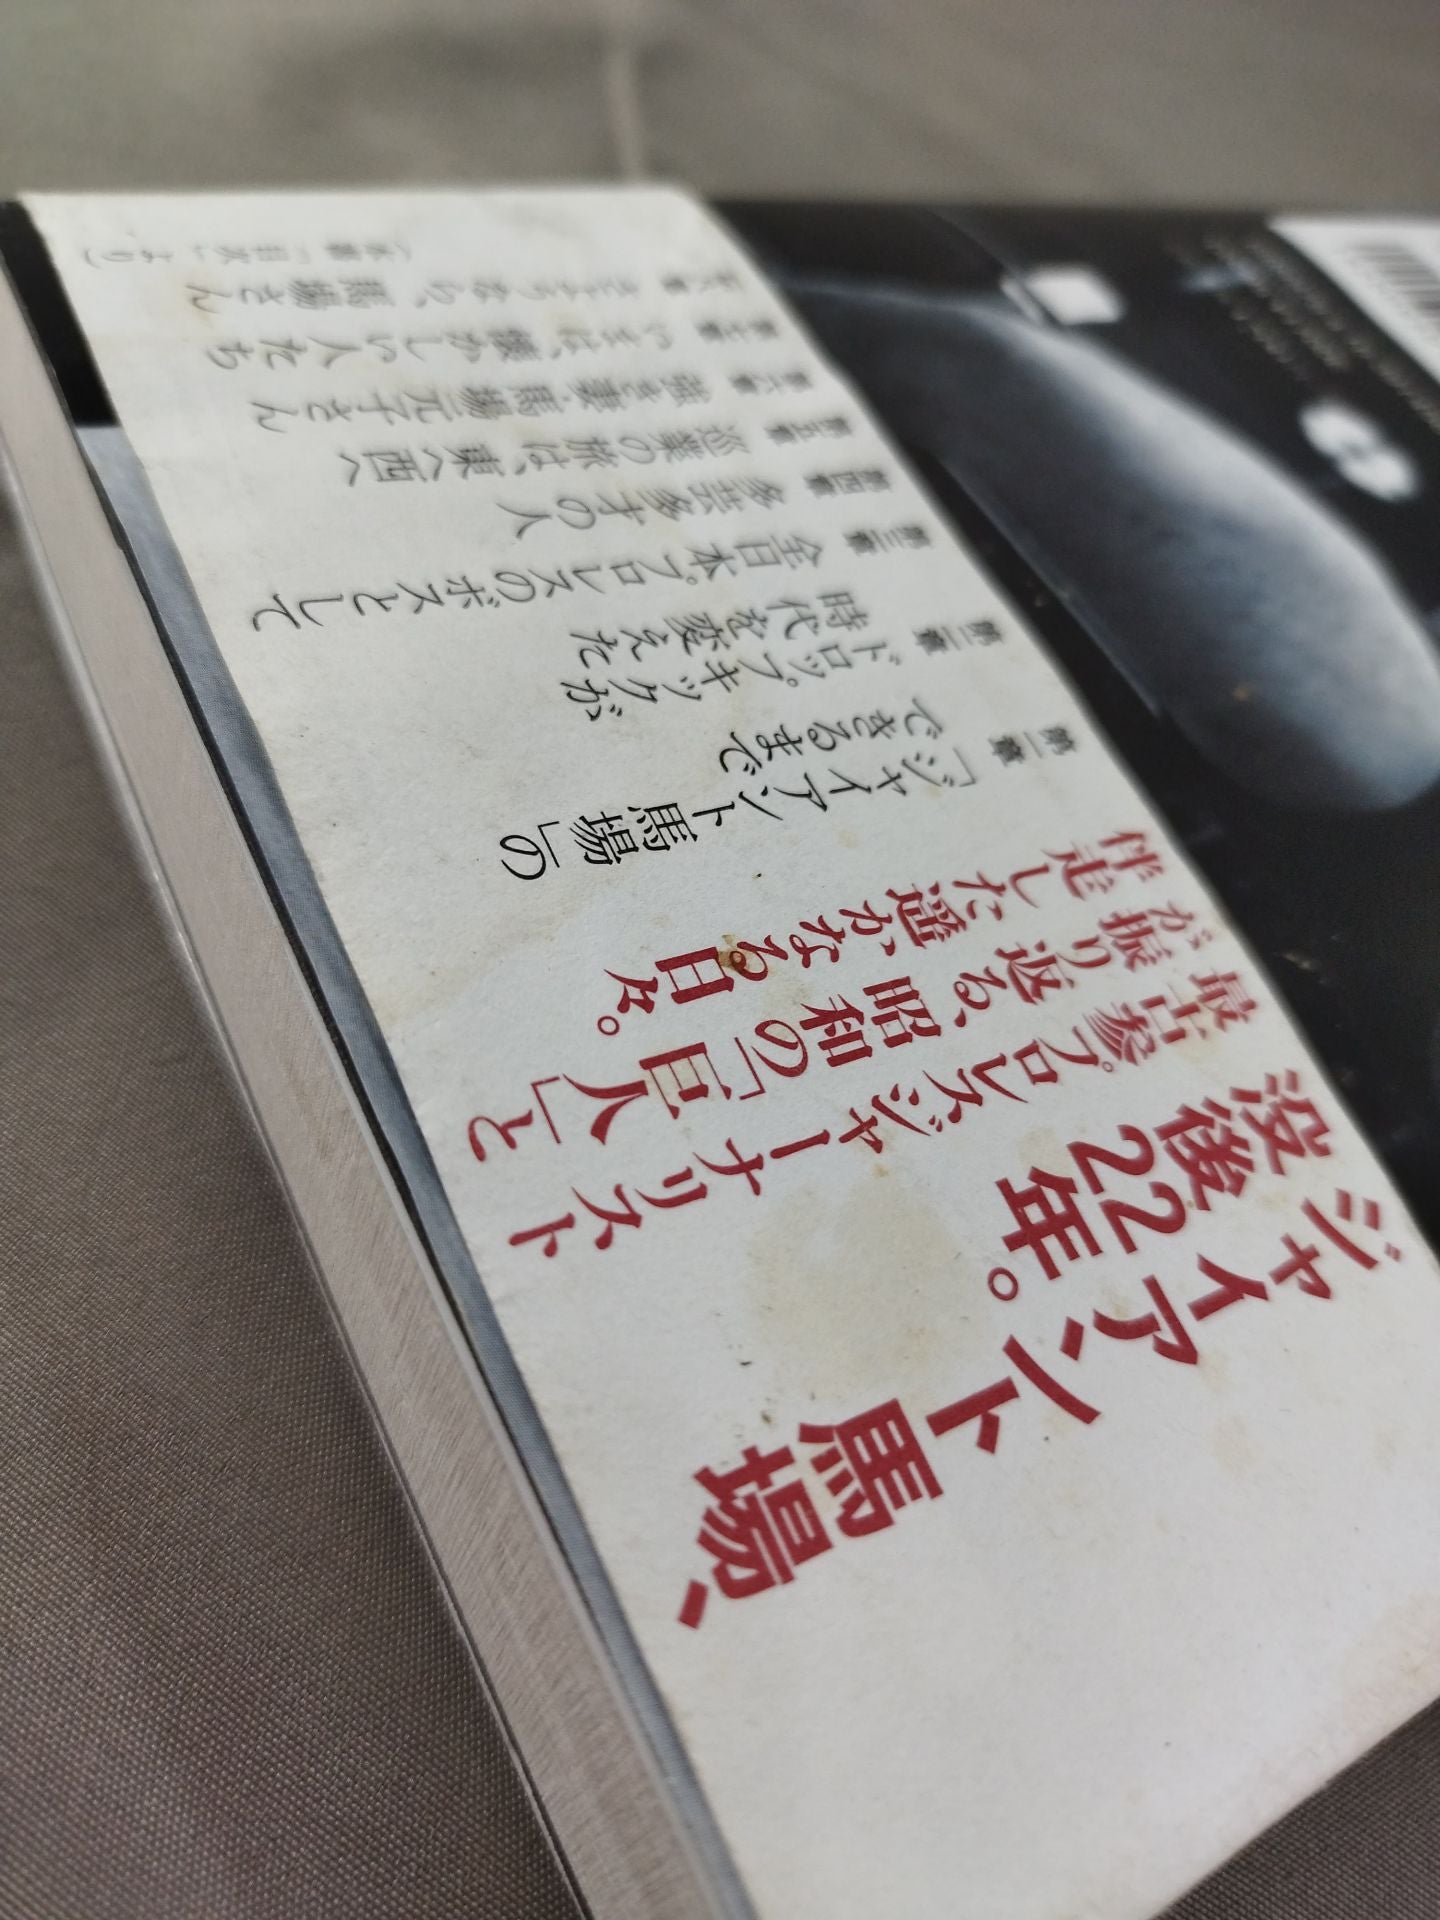 ジャイアント馬場、
没後22年。
最古参プロレスジャーナリスト
が振り返る、昭和の「巨人」と
伴走した遥かなる日々。
第一章 「ジャイアント馬場」の
できるまで
第二章 ドロップキックが
時代を変えた
第三章 全日本プロレスのボスとして
第四章 多芸多才の人
第五章 巡業の旅は、東へ西へ
第六章 強き妻・馬場元子さん
第七章 いまは、懐かしい人たち
第八章 さようなら、馬場さん
(本書「目次」より)